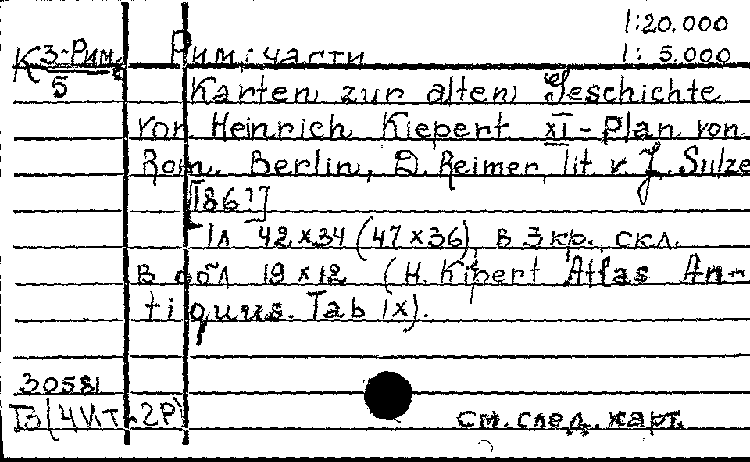 1:20.000
К 3-Рим. Рим; части 1: 5.000
5
Karten zur alten Geschichte
von Heinrich Kiepert XI - Plan von
Rom. Berlin, D. Reimer, lit v. J. Sulze
[186?]
1л 42×34 (47×36), в 3 кр. скл.
в обл 19×12 (H. Kipert Atlas An-
tiquus. Tab ix).
30581
см. след. карт.